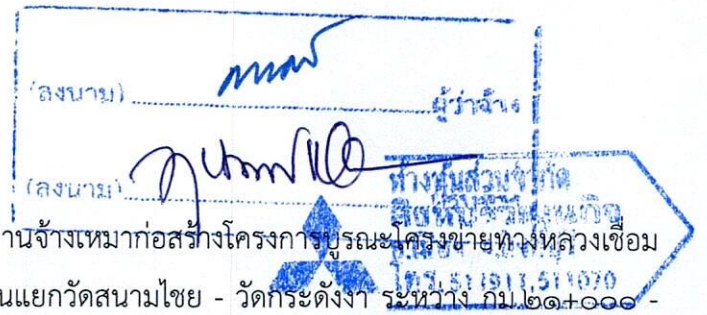 (ลงนาม)..............................ผู้ว่าจ้าง
(ลงนาม)
ห้างหุ้นส่วนจำกัด
โทร. 511911, 511070
านจ้างเหมาก่อสร้างโครงการบูรณะโครงข่ายทางหลวงเชื่อม
นแยกวัดสนามไชย - วัดกระดังงา ระหว่าง กม.๒๑+๐๐๐ -